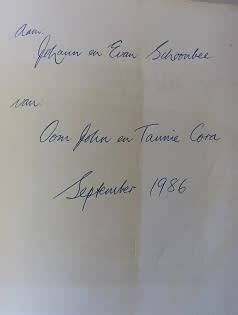 aan
Johann en Evan Schoonbee
van
Oom John en Tannie Cora
September 1986